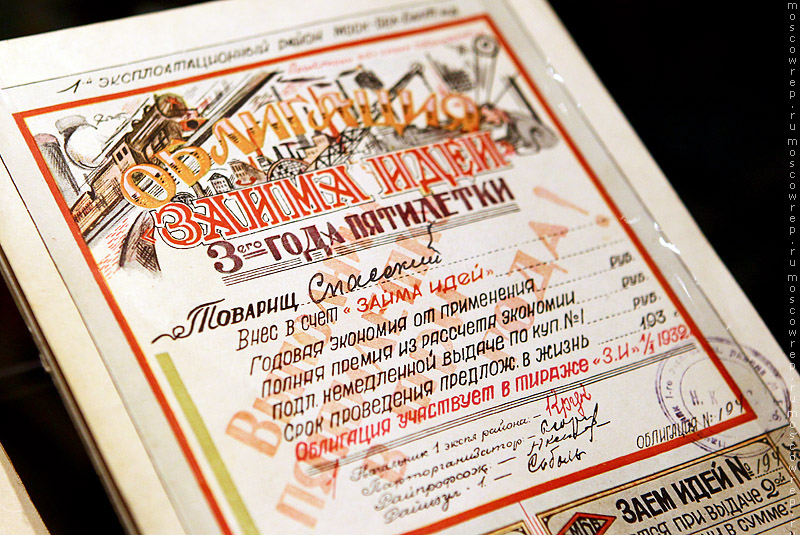 1й ЭКСПЛОАТАЦИОННЫЙ РАЙОН МББ
ОБЛИГАЦИЯ
„ЗАЙМА ИДЕЙ“
3ЕГО ГОДА ПЯТИЛЕТКИ
ТОВАРИЩ Спасский
ВНЕС В СЧЕТ „ЗАЙМА ИДЕЙ“
ГОДОВАЯ ЭКОНОМИЯ ОТ ПРИМЕНЕНИЯ РУБ.
ПОЛНАЯ ПРЕМИЯ ИЗ РАССЧЕТА ЭКОНОМИИ РУБ.
ПОДЛ. НЕМЕДЛЕННОЙ ВЫДАЧЕ ПО КУП. №1 РУБ.
СРОК ПРОВЕДЕНИЯ ПРЕДЛОЖ. В ЖИЗНЬ 193
ОБЛИГАЦИЯ УЧАСТВУЕТ В ТИРАЖЕ „З.И“ 1932
Начальник 1 экспл района
Парторганизатор
Райпрофсож.
1 Соболь
ОБЛИГАЦИЯ №: 194
ЗАЕМ ИДЕЙ № 194
МББ
ТСЯ ПРИ ВЫДАЧЕ 2ОЙ
И В СУММЕ:
moscowrep.ru moscowrep.ru moscowrep.ru moscowrep.ru